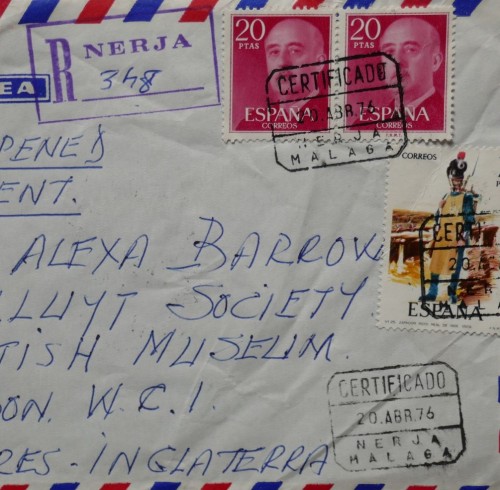 20 PTAS
20 PTAS
ESPAÑA
CORREOS
ESPAÑA
CORREOS
R NERJA
348
CERTIFICADO
20.ABR.76
NERJA
MALAGA
EA
PENED
ENT.
CORREOS
ESPAÑA
CERTI
20.A
ALEXA BARROW
LLUYT SOCIETY
TISH MUSEUM.
DON. W.C.I.
RES-INGLATERRA
CERTIFICADO
20.ABR.76
NERJA
MALAGA